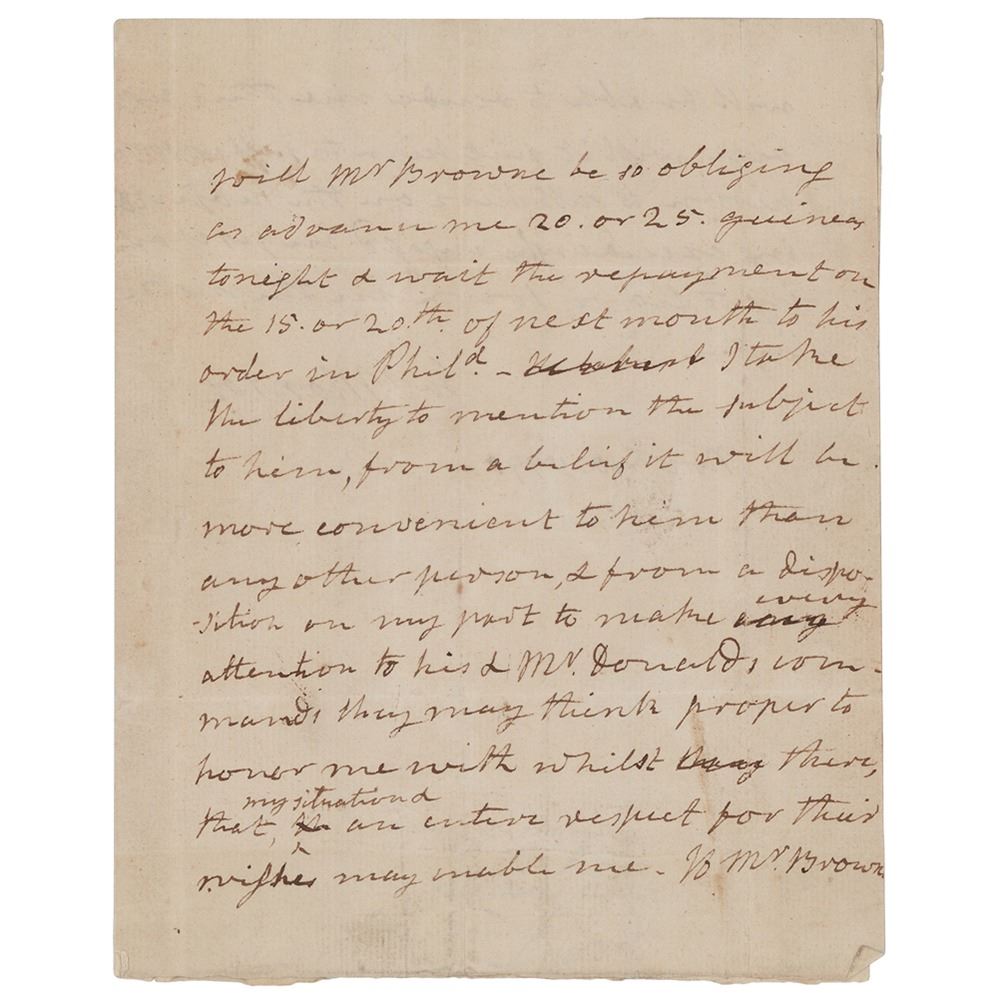 Will Mr Browne be so obliging
as advance me 20. or 25. guineas
tonight & wait the repayment on
the 15. or 20.th of next month to his
order in Phild. - I take
the liberty to mention the subject
to him, from a belief it will be
more convenient to him than
any other person, & from a dispo-
-sition on my part to make any every
attention to his & Mr. Donalds com-
mands they may think proper to
honor me with whilst they there,
that, my situation & an entire respect for their
wishes may enable me. If Mr. Browne